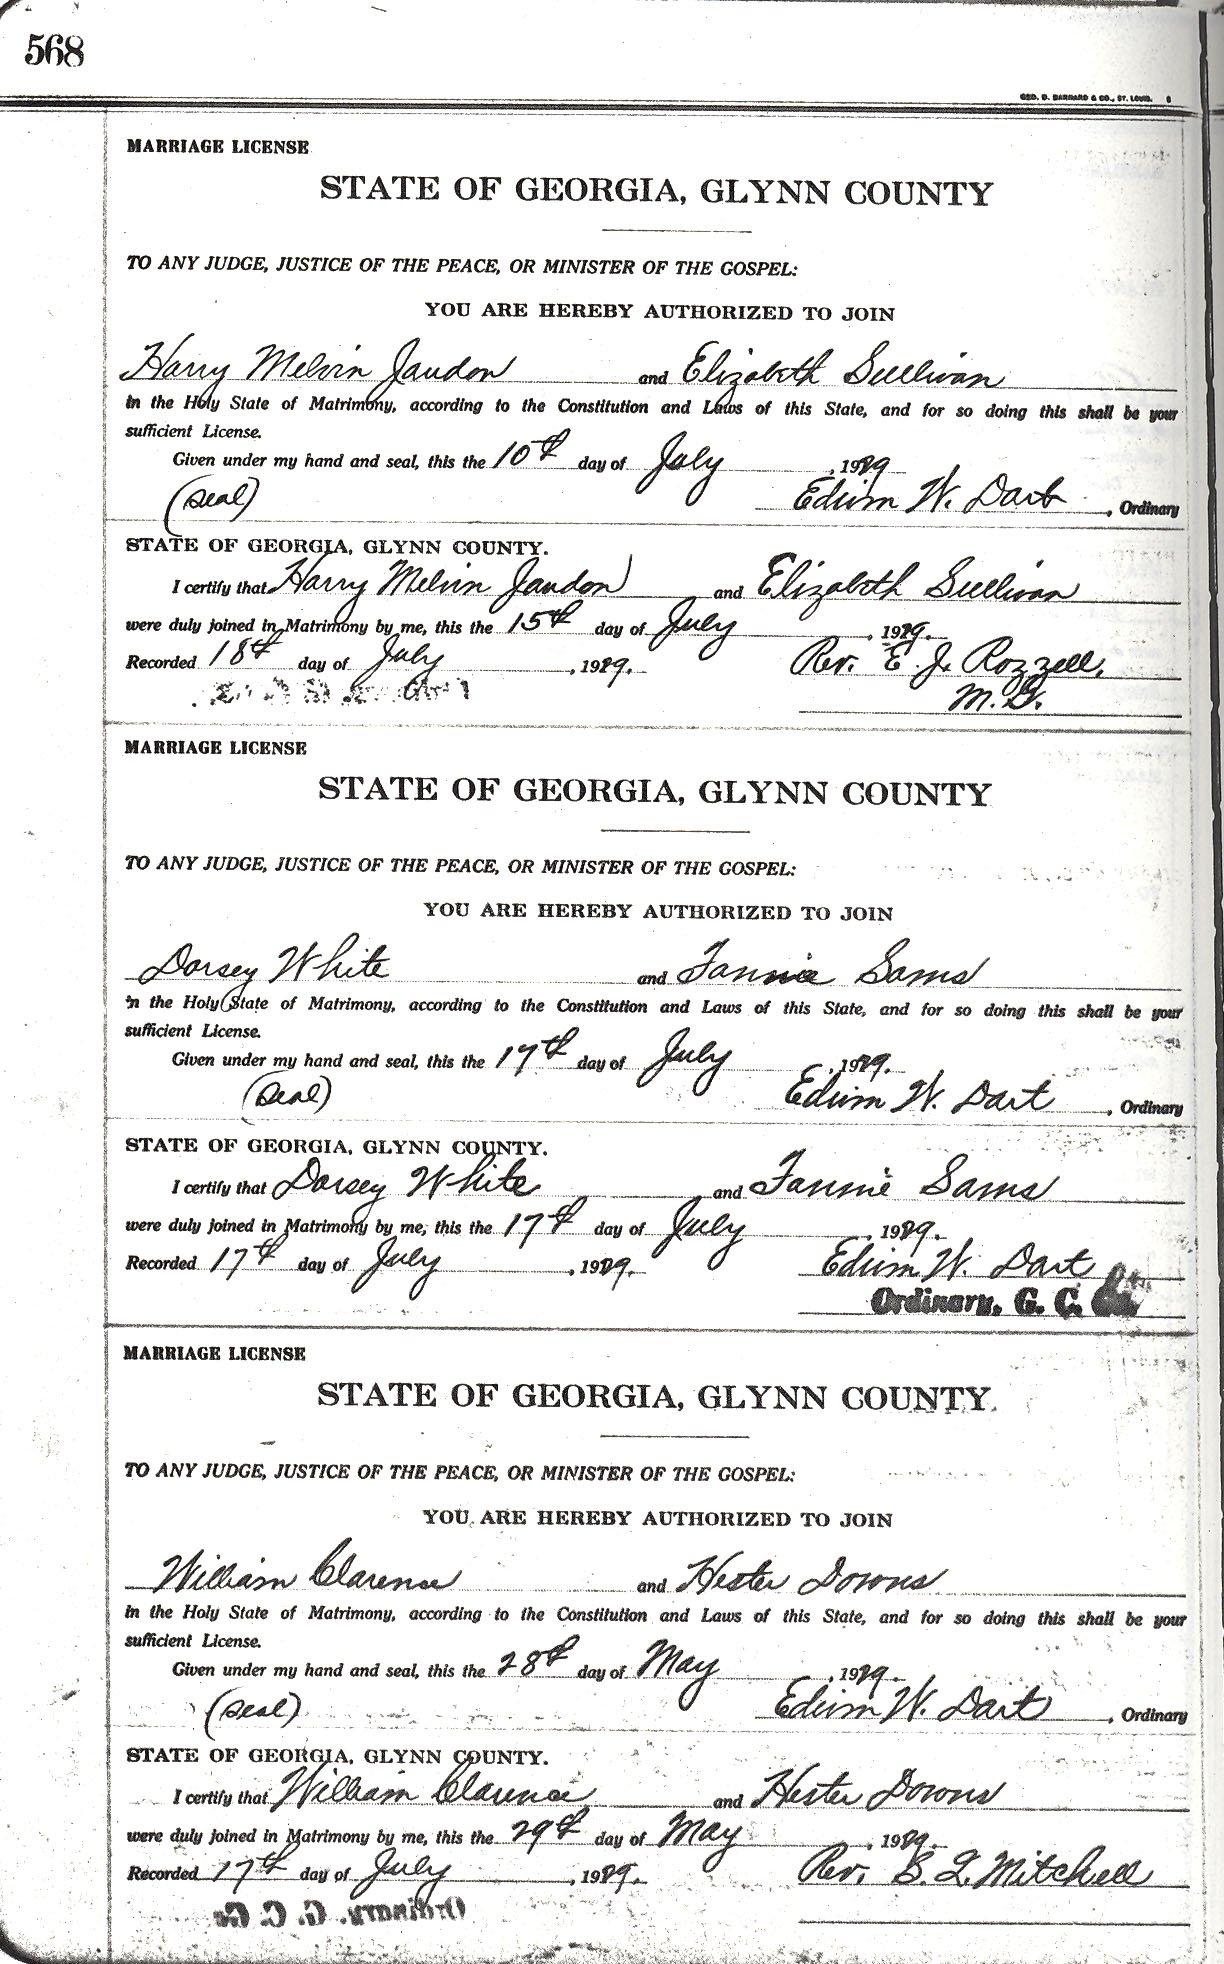 568
GEO. D. BARNARD & CO., ST. LOUIS.
MARRIAGE LICENSE
STATE OF GEORGIA, GLYNN COUNTY
TO ANY JUDGE, JUSTICE OF THE PEACE, OR MINISTER OF THE GOSPEL:
YOU ARE HEREBY AUTHORIZED TO JOIN
Harry Melvin Jaudon and Elizabeth Sullivan
in the Holy State of Matrimony, according to the Constitution and Laws of this State, and for so doing this shall be your
sufficient License.
Given under my hand and seal, this the 10th day of July , 1929
(seal) Edwin W. Dart , Ordinary
STATE OF GEORGIA, GLYNN COUNTY.
I certify that Harry Melvin Jaudon and Elizabeth Sullivan
were duly joined in Matrimony by me, this the 15th day of July , 1929.
Recorded 18th day of July , 1929. Rev. E. J. Rozzell,
M. G.
MARRIAGE LICENSE
STATE OF GEORGIA, GLYNN COUNTY
TO ANY JUDGE, JUSTICE OF THE PEACE, OR MINISTER OF THE GOSPEL:
YOU ARE HEREBY AUTHORIZED TO JOIN
Dorsey White and Fannie Sams
in the Holy State of Matrimony, according to the Constitution and Laws of this State, and for so doing this shall be your
sufficient License.
Given under my hand and seal, this the 17th day of July , 1929.
(seal) Edwin W. Dart , Ordinary
STATE OF GEORGIA, GLYNN COUNTY.
I certify that Dorsey White and Fannie Sams
were duly joined in Matrimony by me, this the 17th day of July , 1929.
Recorded 17th day of July , 1929. Edwin W. Dart
Ordinary, G. C. Ga.
MARRIAGE LICENSE
STATE OF GEORGIA, GLYNN COUNTY.
TO ANY JUDGE, JUSTICE OF THE PEACE, OR MINISTER OF THE GOSPEL:
YOU ARE HEREBY AUTHORIZED TO JOIN
William Clarence and Hester Downs
in the Holy State of Matrimony, according to the Constitution and Laws of this State, and for so doing this shall be your
sufficient License.
Given under my hand and seal, this the 28th day of May , 1929.
(seal) Edwin W. Dart , Ordinary
STATE OF GEORGIA, GLYNN COUNTY.
I certify that William Clarence and Hester Downs
were duly joined in Matrimony by me, this the 29th day of May , 1929.
Recorded 17th day of July , 1929. Rev. S. L. Mitchell
Ordinary, G. C. Ga